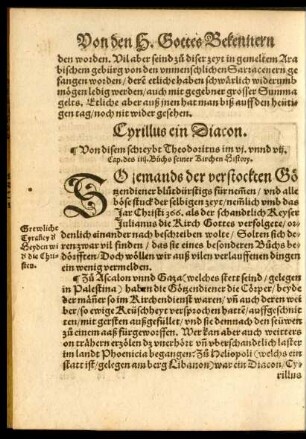 Von den H. Gottes Bekennern
den worden. Vil aber seind zů diser zeyt in gemeltem Ara
bischem gebürg von den vnmenschlichen Sarracenern ge
fangen worden / derẽ etliche haben schwärlich widerumb
mögen ledig werden / auch mit gegebner grosser Summa
gelts. Etliche aber auß jnen hat man biß auff den heüti
gen tag / noch nit wider gesehen.
Cyrillus ein Diacon.
¶ Von disem schreybt Theodoritus im vj. vnnd vij.
Cap. des iij. Bůchs seiner Kirchen History.
SO jemands der verstockten Gö
tzendiener blůtdürstigs fürnemen / vnd alle
böse stuck der selbigen zeyt / nemlich vmb das
Jar Christi 366. als der schandelich Keyser
Julianus die Kirch Gottes verfolget / or-
denlich einander nach beschreiben wolte / Solten sich de-
ren zwar vil finden / das sie eines besonderen Bůchs be-
dörfften / Doch wöllen wir auß vilen verlauffenen dingen
ein wenig vermelden.
Grewliche
Tyrañey d̕
Heyden wi
d̕ die Chri-
sten.
¶ Zů Ascalon vnnd Gaza (welches stett seind / gelegen
in Palestina) haben die Götzendiener die Cörper / beyde
der männer so im Kirchendienst waren / vñ auch deren wei
ber / so ewige Keüschheyt versprochen hattẽ / auffgeschnitten /
mit gersten außgefüllet / vnd sie demnach den seüwen
zů einem aaß fürgeworffen. Wer kan aber auch weitters
on trähern erzölen dz vnerhört vñ vberschandelich laster
im landt Phoenicia begangen: Zů Heliopoli (welchs ein
statt ist / gelegen am berg Libanon) war ein Diacon / Cy-
rillus